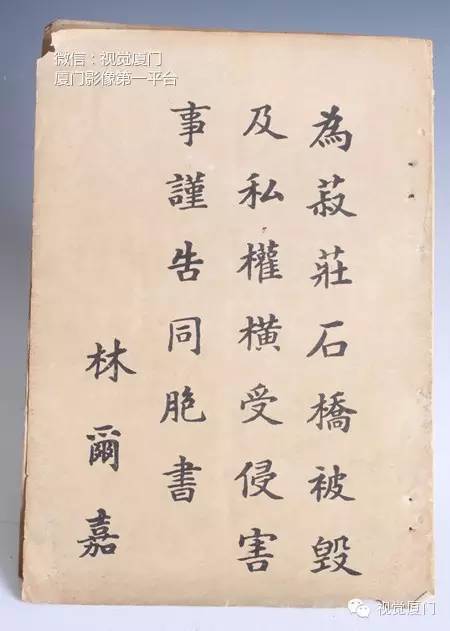 微信：视觉厦门
厦门影像第一平台
為菽莊石橋被毀
及私權橫受侵害
事謹告同胞書
林爾嘉
视觉厦门